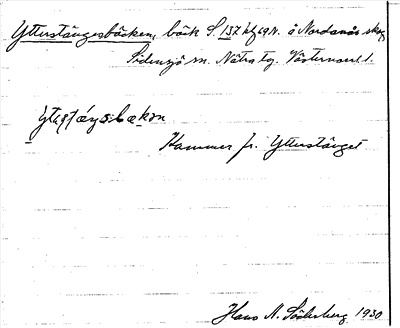 Ytterstängesbäcken, bäck S. 137 kf 69 N. å Nordanås skog
Sidensjö sn. Nätra tg. Västernorrl l.
Kammer fr. Ytterstänget
Hans N. Söderberg 1930